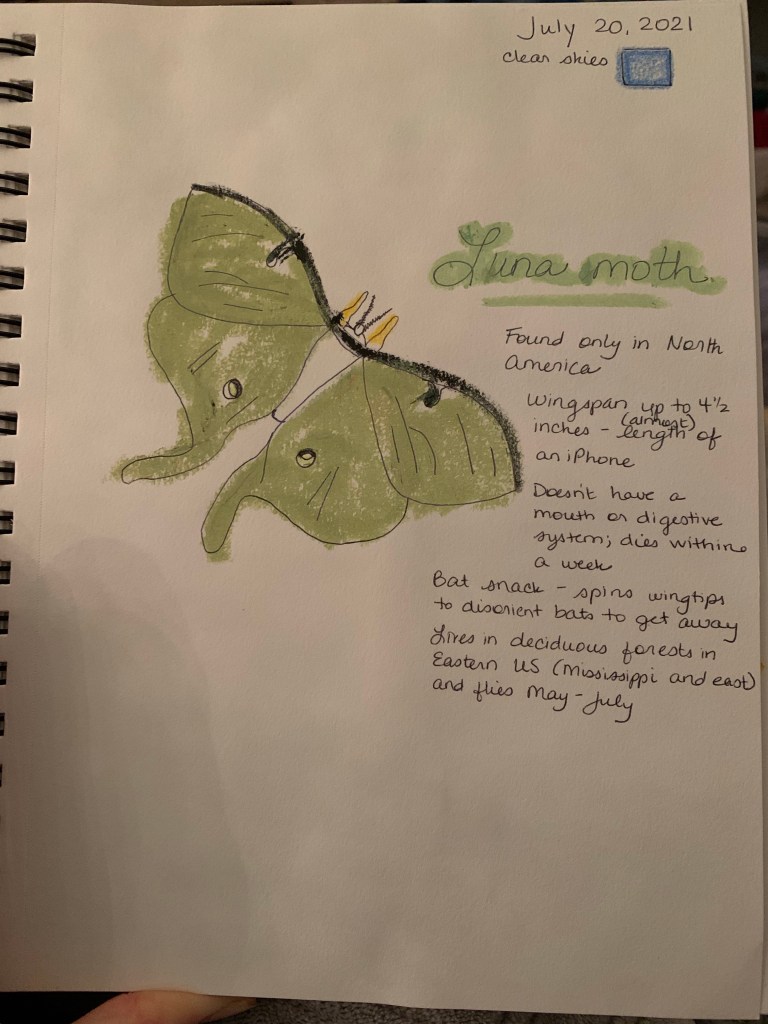 July 20, 2021
clear skies
Luna moth
Found only in North
America
Wingspan up to 4½
(almost)
inches - length of
an iPhone
Doesn't have a
mouth or digestive
system; dies within
a week
Bat snack - spins wingtips
to disorient bats to get away
Lives in deciduous forests in
Eastern US (Mississippi and east)
and flies May - July